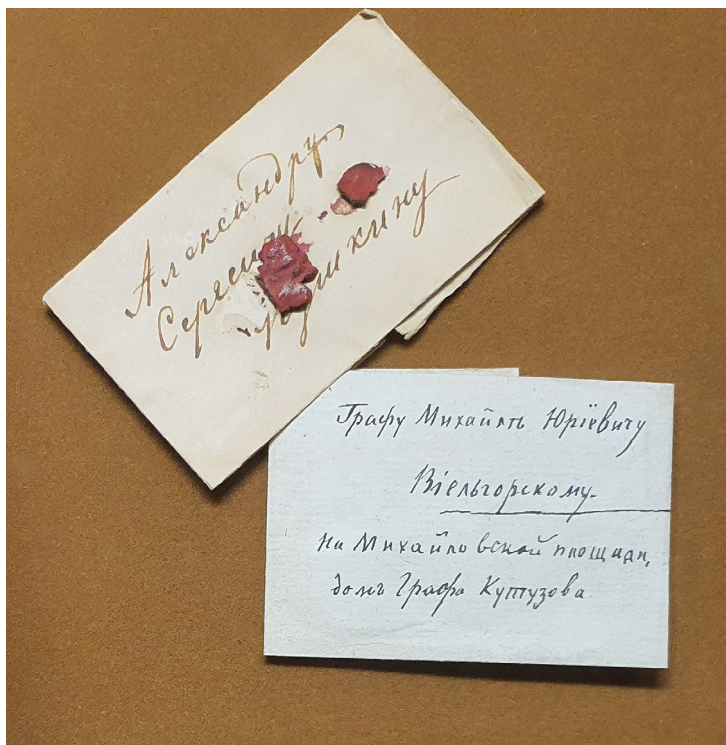 Александру
Сергеичу
Пушкину
Графу Михайлѣ Юріевичу
Віельгорскому.
на Михайловской площади,
домъ Графа Кутузова.